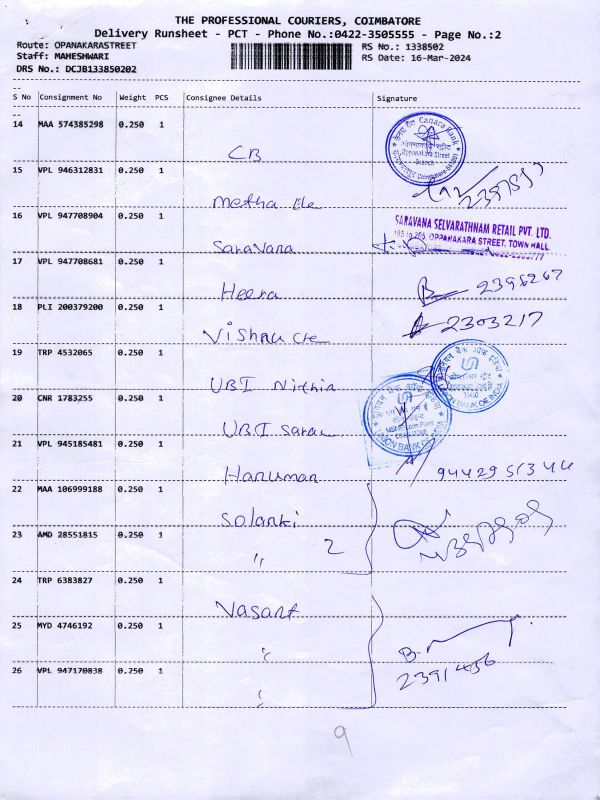 THE PROFESSIONAL COURIERS, COIMBATORE
Delivery Runsheet - PCT - Phone No.:0422-3505555 - Page No.:2
Route: OPANAKARASTREET
RS No.: 1338502
Staff: MAHESHWARI
RS Date: 16-Mar-2024
DRS No.: DCJB133850202
S No Consignment No Weight PCS Consignee Details Signature
14 MAA 574385298 0.250 1 CB
Canara Bank
Oppanakara Street
Branch
15 VPL 946312831 0.250 1 Metha Ele
16 VPL 947708904 0.250 1 Saravana
SARAVANA SELVARATHNAM RETAIL PVT. LTD.
OPPANAKARA STREET, TOWN HALL
17 VPL 947708681 0.250 1 Heera 2396267
18 PLI 200379200 0.250 1 Vishnu Cre 2303217
19 TRP 4532065 0.250 1 UBI Nithin
UNION BANK OF INDIA
20 CNR 1783255 0.250 1 UBI Sarau
UNION BANK OF INDIA
21 VPL 945185481 0.250 1 Hanuman 9442951344
22 MAA 106999188 0.250 1 Solanki
23 AMD 28551815 0.250 1 " 2
24 TRP 6383827 0.250 1 Vasant
25 MYD 4746192 0.250 1 "
26 VPL 947170838 0.250 1 "
2391456
9